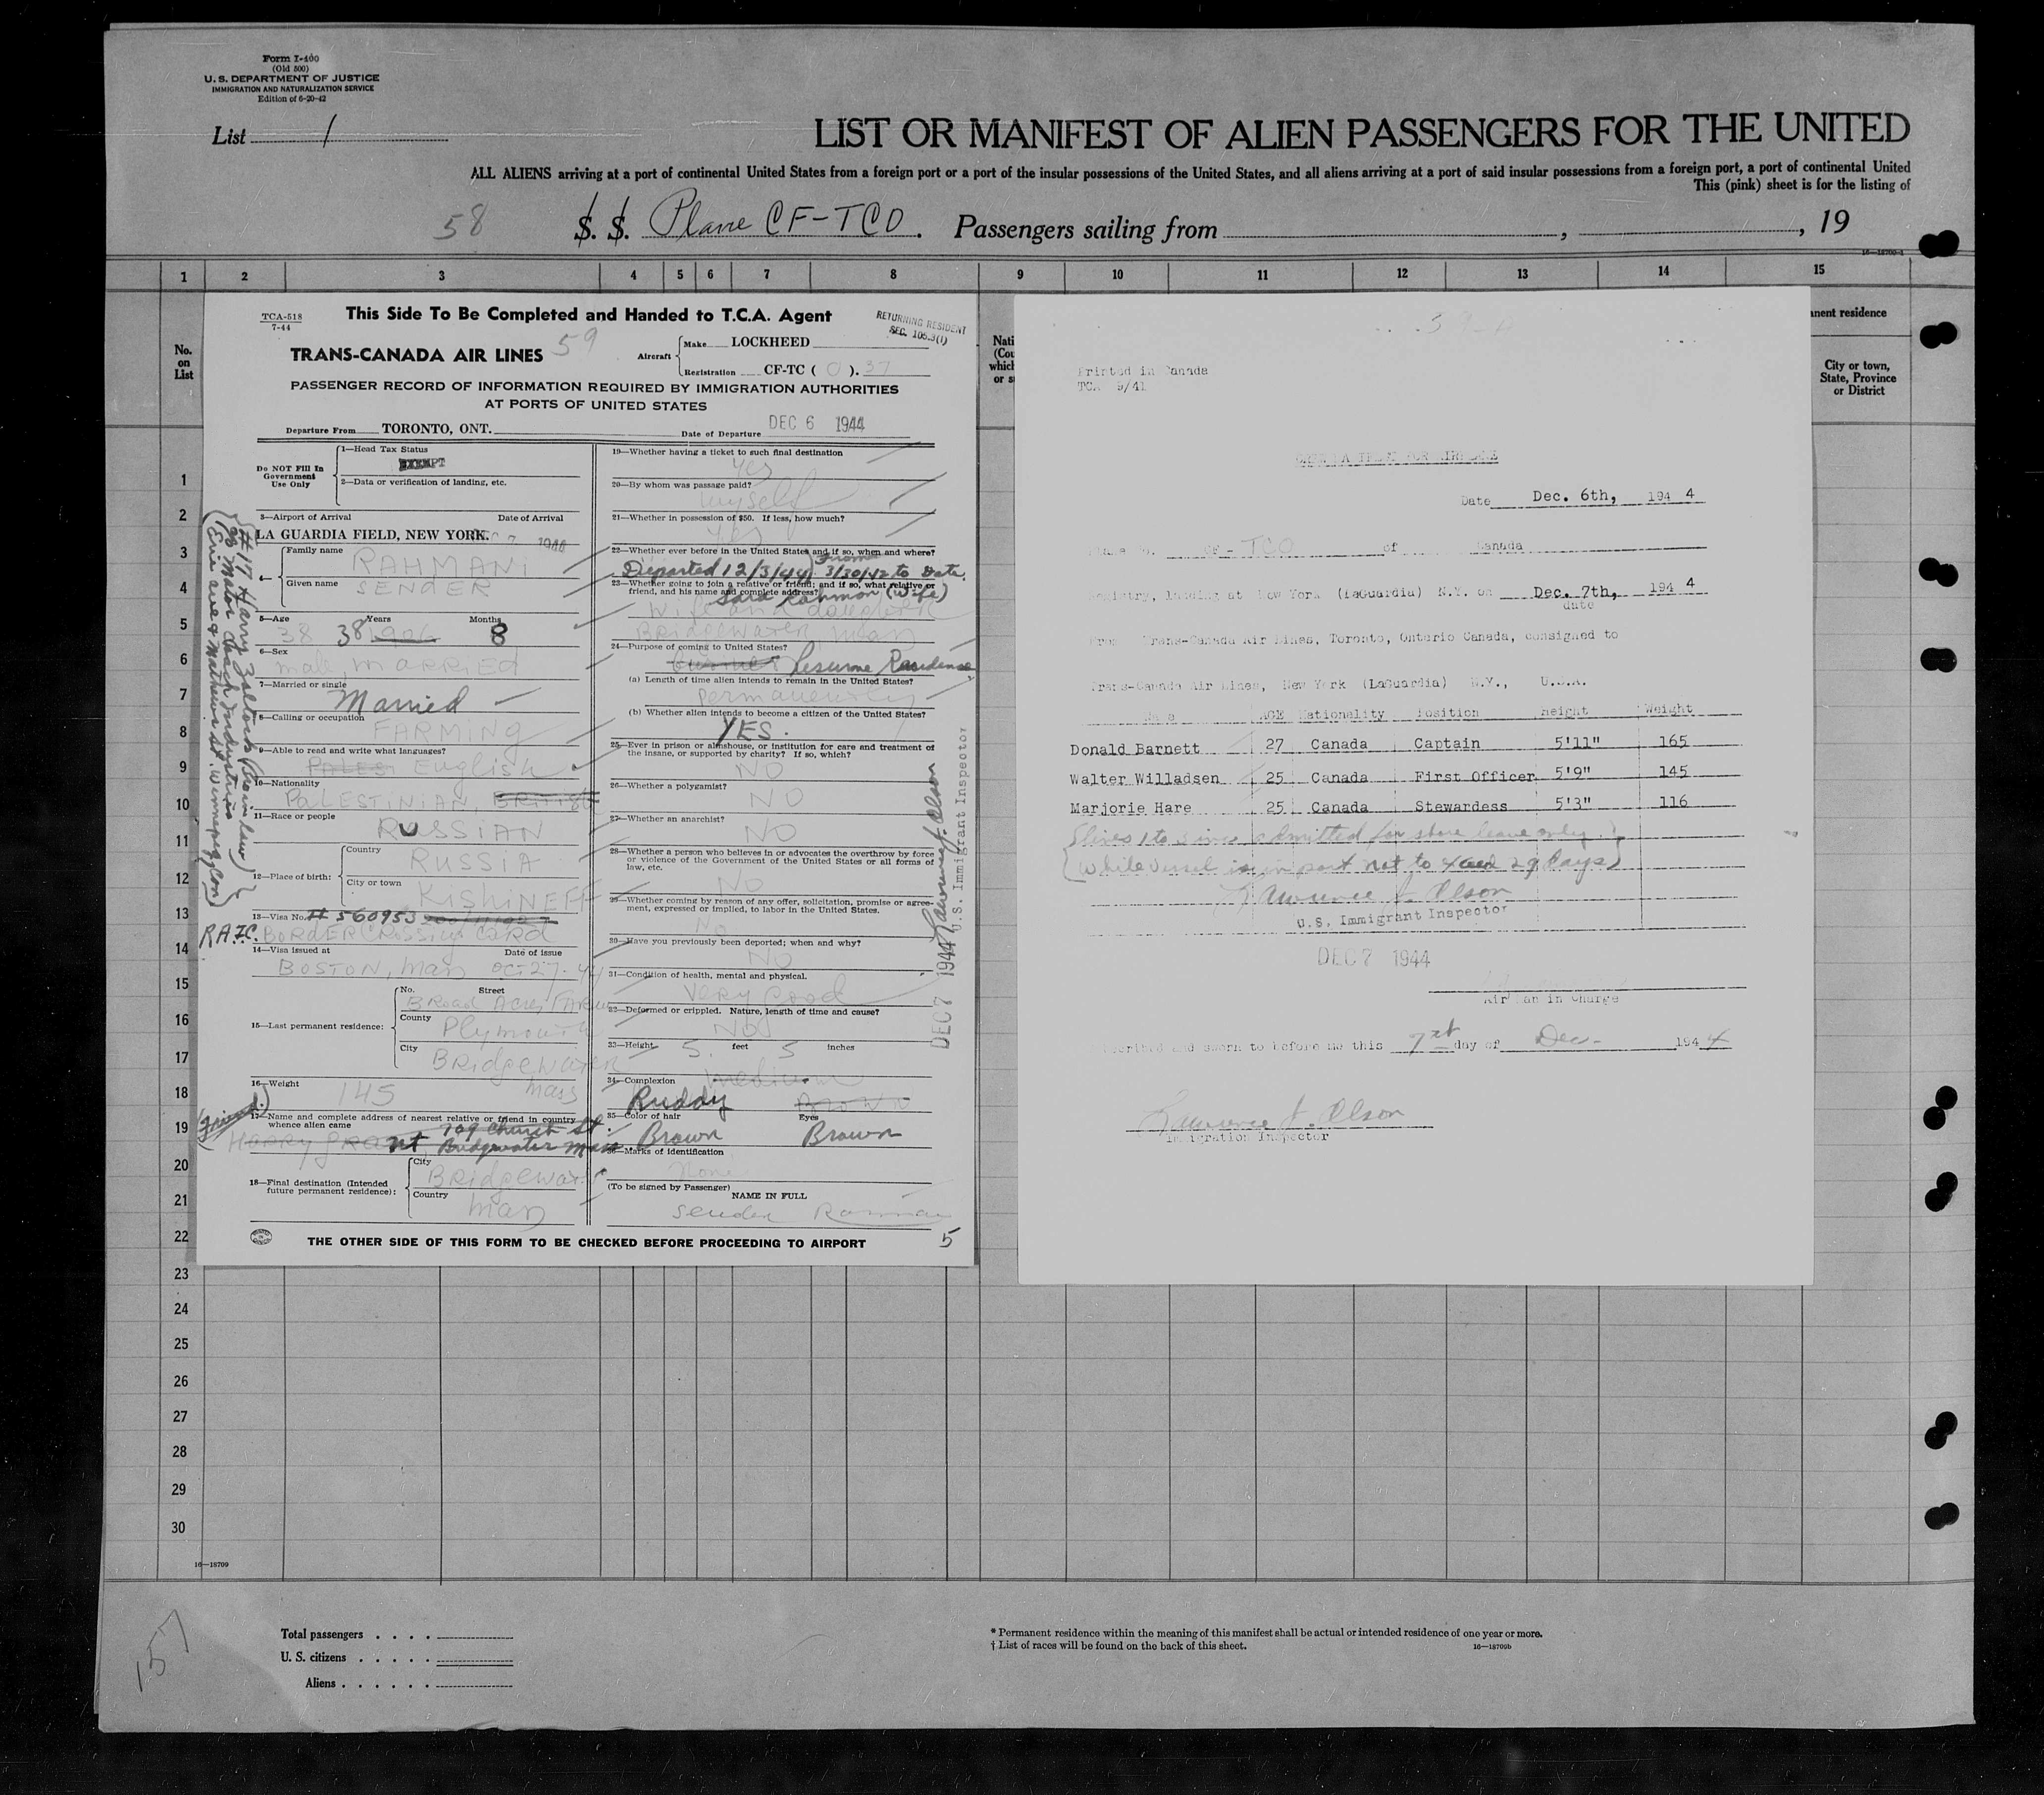 Form I-400
(Old 500)
U. S. DEPARTMENT OF JUSTICE
IMMIGRATION AND NATURALIZATION SERVICE
Edition of 6-20-42
List 1
LIST OR MANIFEST OF ALIEN PASSENGERS FOR THE UNITED
ALL ALIENS arriving at a port of continental United States from a foreign port or a port of the insular possessions of the United States, and all aliens arriving at a port of said insular possessions from a foreign port, a port of continental United
This (pink) sheet is for the listing of
58 S. S. Plane CF-TCO. Passengers sailing from , , 19
16—18709-1
1 2 3 4 5 6 7 8 9 10 11 12 13 14 15
No.
on
List
1
2
3
4
5
6
7
8
9
10
11
12
13
14
15
16
17
18
19
20
21
22
23
24
25
26
27
28
29
30
16—18709
TCA-518
7-44
This Side To Be Completed and Handed to T.C.A. Agent
RETURNING RESIDENT
SEC. 105.3(1)
TRANS-CANADA AIR LINES 59
Aircraft Make LOCKHEED
Registration CF-TC ( O ). 37
PASSENGER RECORD OF INFORMATION REQUIRED BY IMMIGRATION AUTHORITIES
AT PORTS OF UNITED STATES
Departure From TORONTO, ONT. Date of Departure DEC 6 1944
Do NOT Fill In
Government
Use Only
1—Head Tax Status
EXEMPT
2—Data or verification of landing, etc.
3—Airport of Arrival Date of Arrival
LA GUARDIA FIELD, NEW YORK.
4— Family name RAHMANI
Given name SENDER
5—Age Years Months
38 38 8
6—Sex
male, MARRIED
7—Married or single
Married
8—Calling or occupation
FARMING
9—Able to read and write what languages?
PALEST English
10—Nationality
PALESTINIAN, BRITISH
11—Race or people
RUSSIAN
12—Place of birth: Country RUSSIA
City or town KISHINEFF
13—Visa No. # 560953
R.A.I.C. BORDER CROSSING CARD
14—Visa issued at Date of issue
BOSTON, Mass OCT 27-44
15—Last permanent residence: No. Street
BROAD Acres FARM
County
Plymouth
City
BRIDGEWATER
Mass
16—Weight 145
(friend.)
17—Name and complete address of nearest relative or friend in country
whence alien came 109 Church St.
HARRY GRANT, Bridgewater Mass.
18—Final destination (Intended
future permanent residence):
City Bridgewater
Country Mass
# 17 Harry Zaltcock (Bro in law)
c/o Motor Coach Industries
Erie ave & Mathews St. Winnipeg, Can
19—Whether having a ticket to such final destination
Yes
20—By whom was passage paid?
myself
21—Whether in possession of $50. If less, how much?
Yes
22—Whether ever before in the United States and if so, when and where?
Departed 12/3/44, From 3/30/42 to Date.
23—Whether going to join a relative or friend; and if so, what relative or
friend, and his name and complete address?
Sara Rahmon (wife)
Wife and daughter
BRIDGEWATER Mass
24—Purpose of coming to United States?
Resume Residence
(a) Length of time alien intends to remain in the United States?
permanently
(b) Whether alien intends to become a citizen of the United States?
YES.
25—Ever in prison or almshouse, or institution for care and treatment of
the insane, or supported by charity? If so, which?
NO
26—Whether a polygamist?
NO
27—Whether an anarchist?
NO
28—Whether a person who believes in or advocates the overthrow by force
or violence of the Government of the United States or all forms of
law, etc.
NO
29—Whether coming by reason of any offer, solicitation, promise or agree-
ment, expressed or implied, to labor in the United States.
NO
30—Have you previously been deported; when and why?
NO
31—Condition of health, mental and physical.
Very good
32—Deformed or crippled. Nature, length of time and cause?
NO
33—Height 5 feet 5 inches
34—Complexion medium
Ruddy Brown
35—Color of hair Eyes
Brown Brown
36—Marks of identification
None
(To be signed by Passenger)
NAME IN FULL
Sender Rahman
DEC 7 1944 Lawrence J. Olson
U.S. Immigrant Inspector
THE OTHER SIDE OF THIS FORM TO BE CHECKED BEFORE PROCEEDING TO AIRPORT
5
59-A
Printed in Canada
TCA 9/41
Date Dec. 6th, 194 4
CF-TCO of Canada
Registry, landing at New York (LaGuardia) N.Y. on Dec. 7th, 194 4
date
From Trans-Canada Air Lines, Toronto, Ontario Canada, consigned to
Trans-Canada Air Lines, New York (LaGuardia) N.Y., U.S.A.
Name AGE Nationality Position Height Weight
Donald Barnett 27 Canada Captain 5'11" 165
Walter Willadsen 25 Canada First Officer 5'9" 145
Marjorie Hare 25 Canada Stewardess 5'3" 116
Lines 1 to 3 inc admitted for shore leave only.
(While vessel is in port not to exceed 29 Days)
Lawrence J. Olson
U.S. Immigrant Inspector
DEC 7 1944
Airman in Charge
Subscribed and sworn to before me this 7th day of Dec- 194 4
Lawrence J. Olson
Immigration Inspector
nent residence
City or town,
State, Province
or District
157
Total passengers
U. S. citizens
Aliens
* Permanent residence within the meaning of this manifest shall be actual or intended residence of one year or more.
† List of races will be found on the back of this sheet.
16—18709b